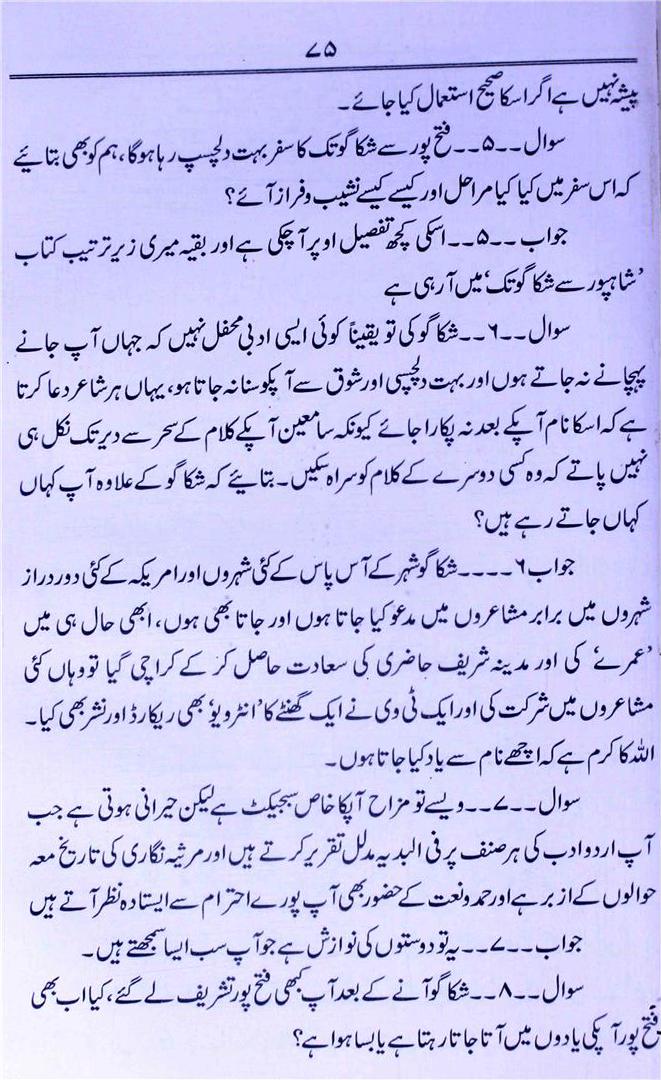 ۷۵
پیشہ نہیں ہے اگر اسکا صحیح استعمال کیا جائے۔
سوال ۔۔۵۔۔ فتح پور سے شکاگو تک کا سفر بہت دلچسپ رہا ہوگا، ہم کو بھی بتائیے
کہ اس سفر میں کیا کیا مراحل اور کیسے کیسے نشیب و فراز آئے؟
جواب ۔۔۵۔۔ اسکی کچھ تفصیل اوپر آچکی ہے اور بقیہ میری زیر ترتیب کتاب
’شاہپور سے شکاگو تک‘ میں آرہی ہے
سوال ۔۔۶۔۔ شکاگو کی تو یقیناً کوئی ایسی ادبی محفل نہیں کہ جہاں آپ جانے
پہچانے نہ جاتے ہوں اور بہت دلچسپی اور شوق سے آپکو سنا نہ جاتا ہو، یہاں ہر شاعر دعا کرتا
ہے کہ اسکا نام آپکے بعد نہ پکارا جائے کیونکہ سامعین آپکے کلام کے سحر سے دیر تک نکل ہی
نہیں پاتے کہ وہ کسی دوسرے کے کلام کو سراہ سکیں۔ بتائیے کہ شکاگو کے علاوہ آپ کہاں
کہاں جاتے رہے ہیں؟
جواب ۶۔۔۔۔ شکاگو شہر کے آس پاس کے کئی شہروں اور امریکہ کے کئی دور دراز
شہروں میں برابر مشاعروں میں مدعو کیا جاتا ہوں اور جاتا بھی ہوں، ابھی حال ہی میں
’عمرے‘ کی اور مدینہ شریف حاضری کی سعادت حاصل کر کے کراچی گیا تو وہاں کئی
مشاعروں میں شرکت کی اور ایک ٹی وی نے ایک گھنٹے کا ’انٹرویو‘ بھی ریکارڈ اور نشر بھی کیا۔
اللہ کا کرم ہے کہ اچھے نام سے یاد کیا جاتا ہوں۔
سوال ۔۔۷۔۔ ویسے تو مزاح آپکا خاص سبجیکٹ ہے لیکن حیرانی ہوتی ہے جب
آپ اردو ادب کی ہر صنف پر فی البدیہ مدلل تقریر کرتے ہیں اور مرثیہ نگاری کی تاریخ معہ
حوالوں کے ازبر ہے اور حمد و نعت کے حضور بھی آپ پورے احترام سے ایستادہ نظر آتے ہیں
جواب ۔۔۷۔۔ یہ تو دوستوں کی نوازش ہے جو آپ سب ایسا سمجھتے ہیں۔
سوال ۔۔۸۔۔ شکاگو آنے کے بعد آپ کبھی فتح پور تشریف لے گئے، کیا اب بھی
فتح پور آپکی یادوں میں آتا جاتا رہتا ہے یا بسا ہوا ہے؟